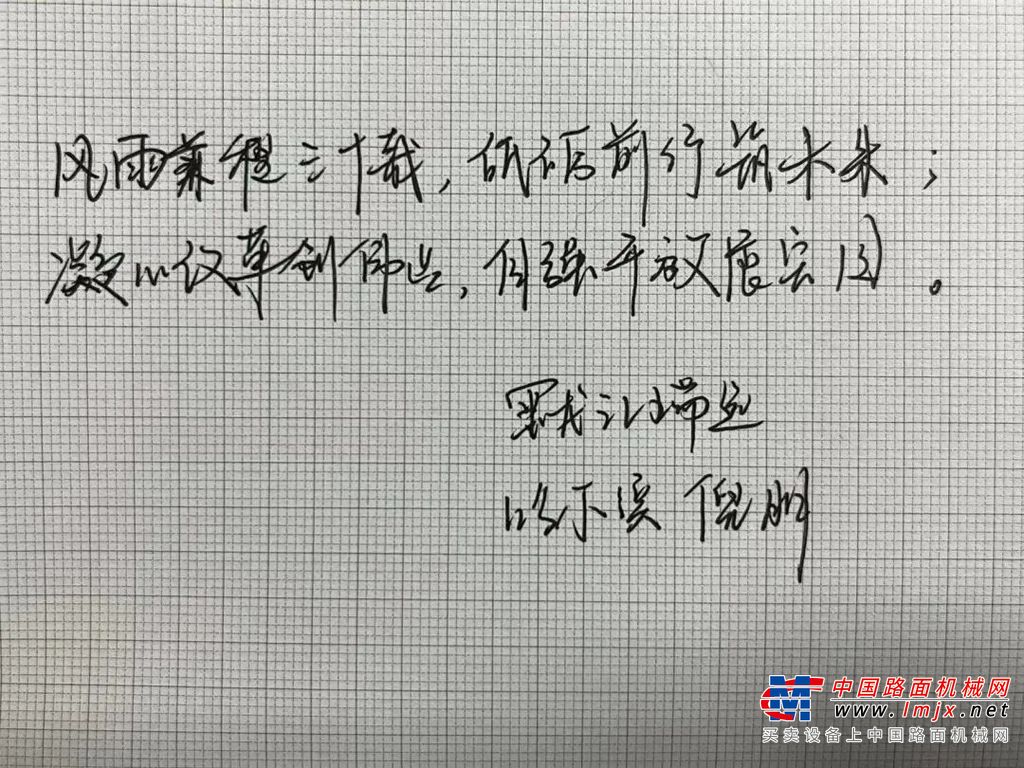 风雨兼程三十载,砥砺前行筑未来;
凝心改革创业,自强开放展宏图。
哈尔滨 倪
中国路面机械网
www.lmjx.net
买卖设备上中国路面机械网